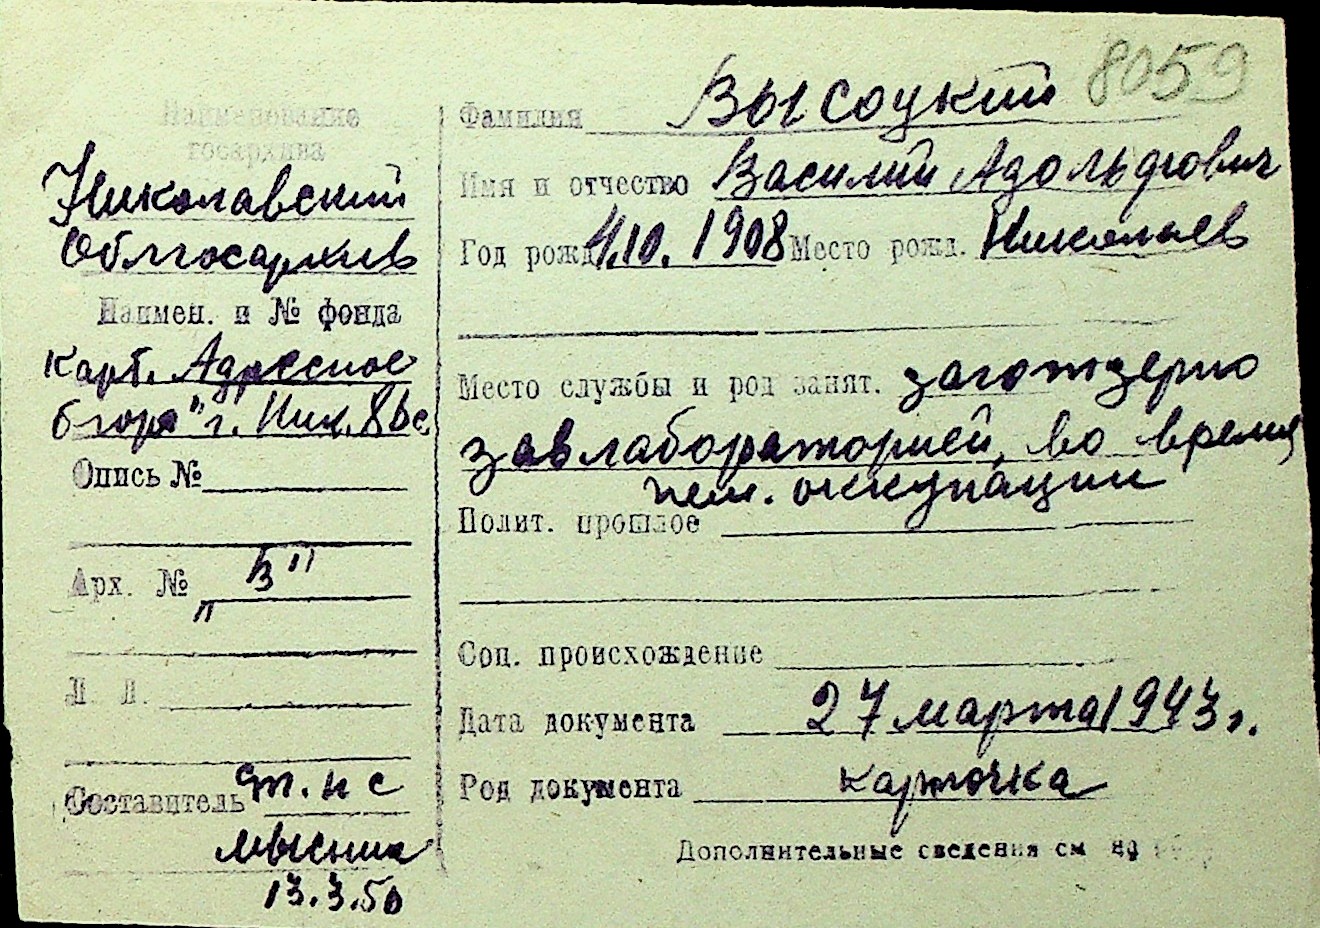 8059
Наименование
госархива
Николавский
Облгосархив
Наимен. и № фонда
карт. Адресное
бюро" г. Ник.
Опись №
Арх. № "В"
Л. Л.
Составитель ст. н с
13.3.50
Фамилия Высоцкий
Имя и отчество Василий Адольфович
Год рожд. 4.10.1908 Место рожд. Николаев
Место службы и род занят. заготзерно
завлабораторией, во время
нем. оккупации
Полит. прошлое
Соц. происхождение
Дата документа 27 марта 1943 г.
Род документа карточка
Дополнительные сведения см на